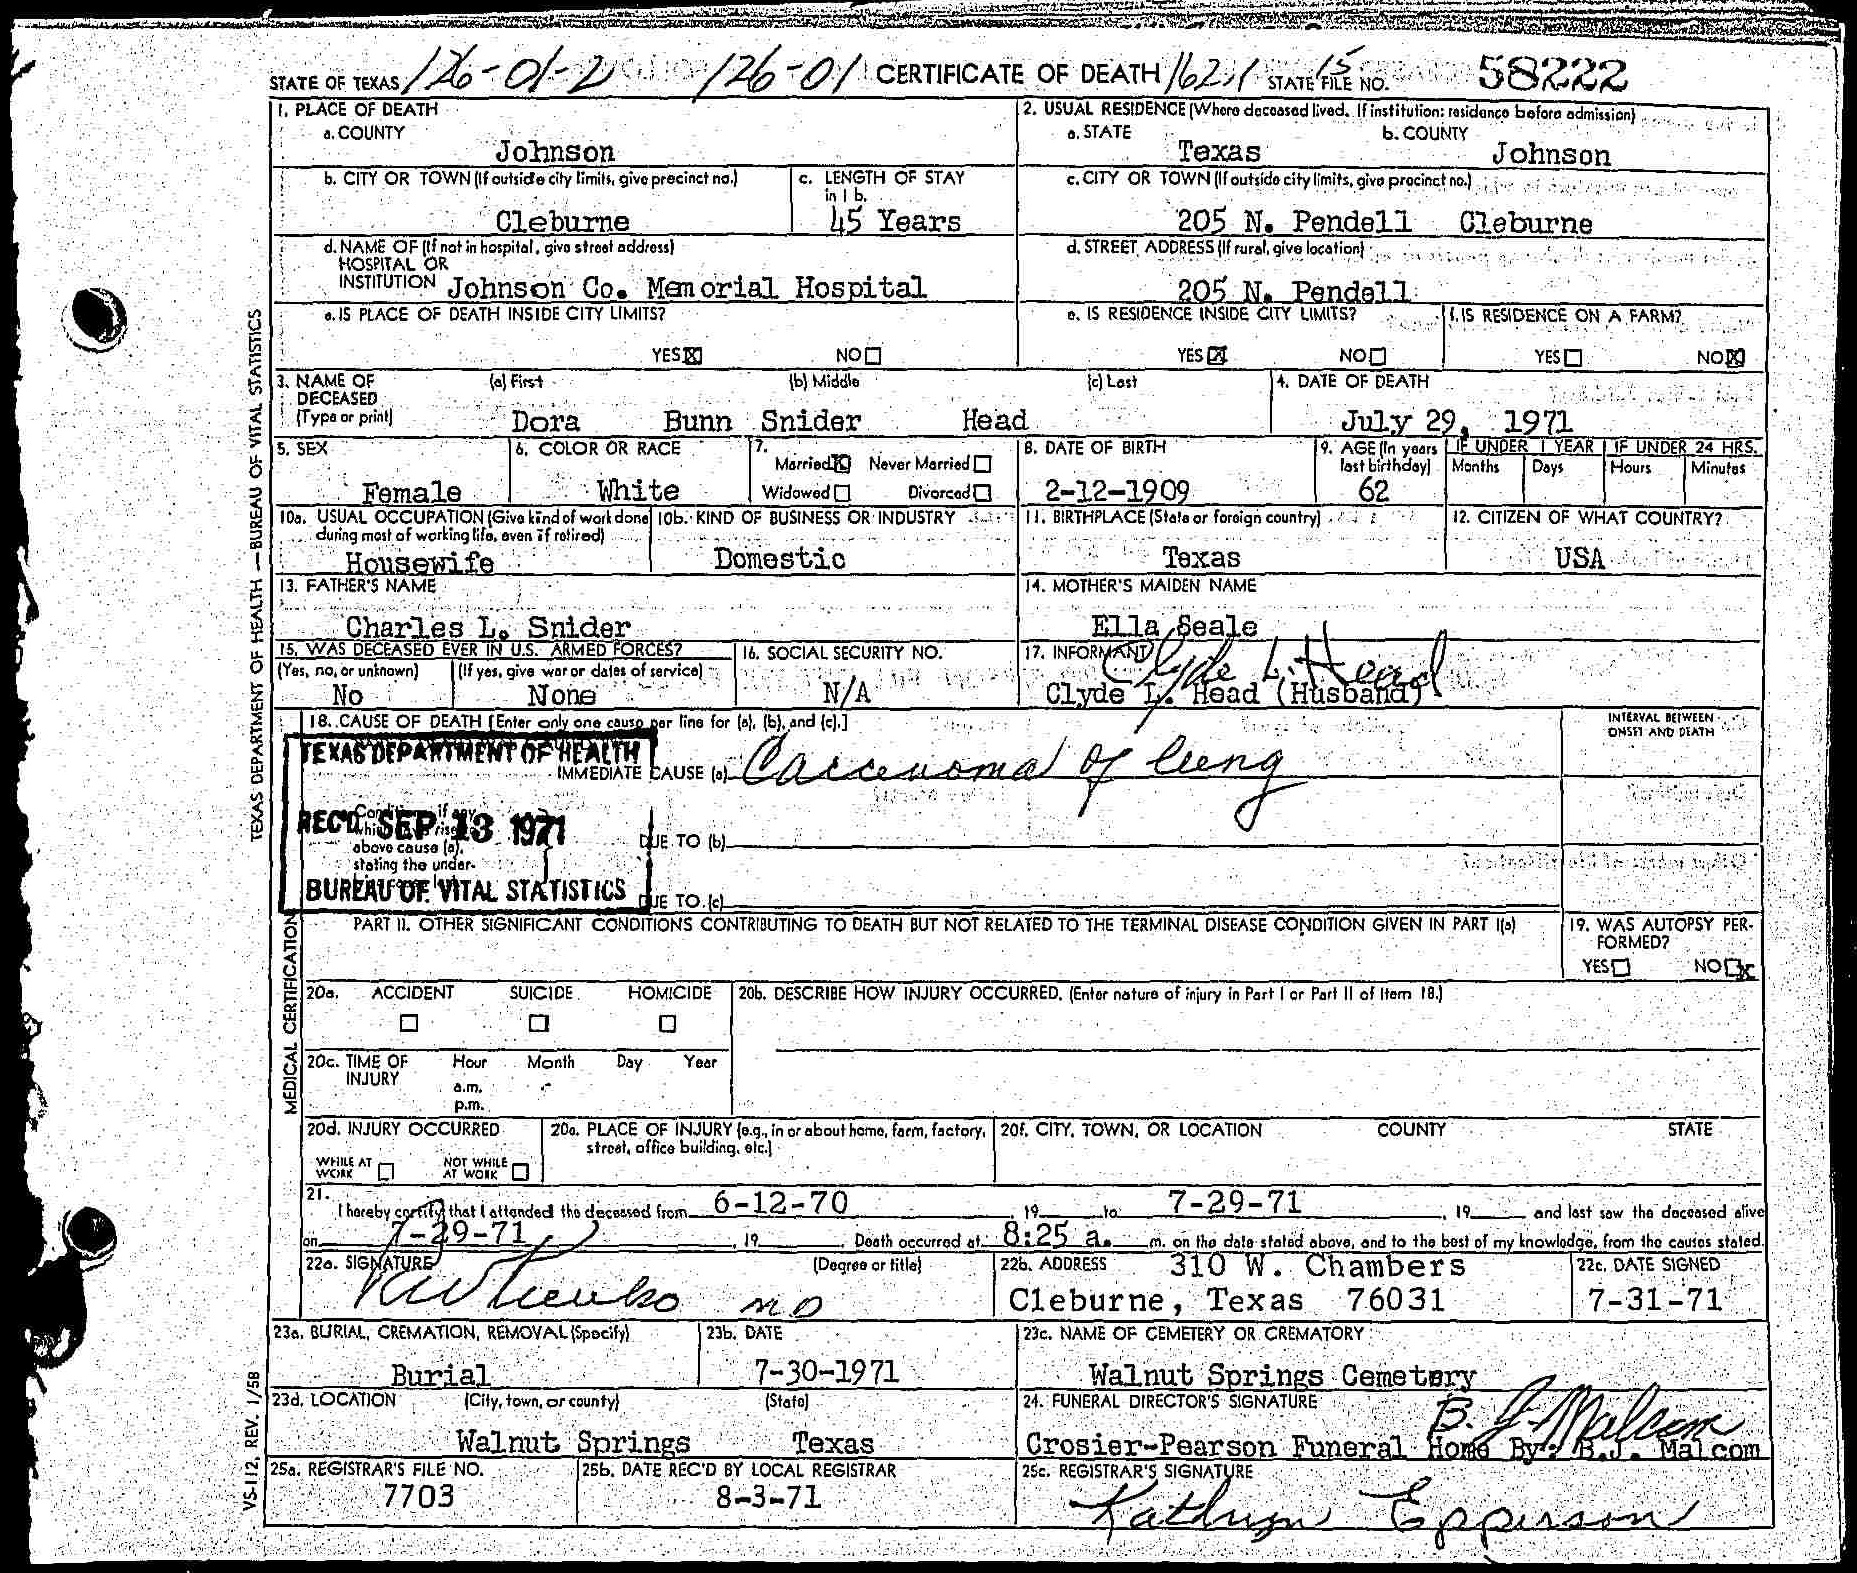 STATE OF TEXAS 126-01-2 126-01 CERTIFICATE OF DEATH 162.1 15 STATE FILE NO. 58222
1. PLACE OF DEATH
a. COUNTY
Johnson
2. USUAL RESIDENCE (Where deceased lived. If institution: residence before admission)
a. STATE b. COUNTY
Texas Johnson
b. CITY OR TOWN (If outside city limits, give precinct no.)
Cleburne
c. LENGTH OF STAY
in 1 b.
45 Years
c. CITY OR TOWN (If outside city limits, give precinct no.)
205 N. Pendell Cleburne
d. NAME OF (If not in hospital, give street address)
HOSPITAL OR
INSTITUTION Johnson Co. Memorial Hospital
d. STREET ADDRESS (If rural, give location)
205 N. Pendell
e. IS PLACE OF DEATH INSIDE CITY LIMITS?
YES☒ NO☐
e. IS RESIDENCE INSIDE CITY LIMITS?
YES☒ NO☐
f. IS RESIDENCE ON A FARM?
YES☐ NO☒
3. NAME OF
DECEASED
(Type or print)
(a) First (b) Middle (c) Last
Dora Bunn Snider Head
4. DATE OF DEATH
July 29, 1971
5. SEX
Female
6. COLOR OR RACE
White
7.
Married☒ Never Married☐
Widowed☐ Divorced☐
8. DATE OF BIRTH
2-12-1909
9. AGE (In years
last birthday)
62
IF UNDER 1 YEAR
Months Days
IF UNDER 24 HRS.
Hours Minutes
10a. USUAL OCCUPATION (Give kind of work done
during most of working life, even if retired)
Housewife
10b. KIND OF BUSINESS OR INDUSTRY
Domestic
11. BIRTHPLACE (State or foreign country)
Texas
12. CITIZEN OF WHAT COUNTRY?
USA
13. FATHER'S NAME
Charles L. Snider
14. MOTHER'S MAIDEN NAME
Ella Seale
15. WAS DECEASED EVER IN U.S. ARMED FORCES?
(Yes, no, or unknown) (If yes, give war or dates of service)
No None
16. SOCIAL SECURITY NO.
N/A
17. INFORMANT Clyde L. Head
Clyde L. Head (Husband)
18. CAUSE OF DEATH [Enter only one cause per line for (a), (b), and (c).]
INTERVAL BETWEEN
ONSET AND DEATH
TEXAS DEPARTMENT OF HEALTH
IMMEDIATE CAUSE (a) Carcenoma of lung
REC'D SEP 13 1971
above cause (a),
stating the under-
DUE TO (b)
BUREAU OF VITAL STATISTICS
DUE TO (c)
PART II. OTHER SIGNIFICANT CONDITIONS CONTRIBUTING TO DEATH BUT NOT RELATED TO THE TERMINAL DISEASE CONDITION GIVEN IN PART I(a)
19. WAS AUTOPSY PER-
FORMED?
YES☐ NO☒
20a. ACCIDENT SUICIDE HOMICIDE
☐ ☐ ☐
20b. DESCRIBE HOW INJURY OCCURRED. (Enter nature of injury in Part I or Part II of Item 18.)
20c. TIME OF
INJURY
Hour Month Day Year
a.m.
p.m.
20d. INJURY OCCURRED
WHILE AT
WORK ☐
NOT WHILE
AT WORK ☐
20e. PLACE OF INJURY (e.g., in or about home, farm, factory,
street, office building, etc.)
20f. CITY, TOWN, OR LOCATION COUNTY STATE
21.
I hereby certify that I attended the deceased from 6-12-70, 19 to 7-29-71, 19 and last saw the deceased alive
on 7-29-71, 19 Death occurred at 8:25 a. m. on the date stated above, and to the best of my knowledge, from the causes stated.
22a. SIGNATURE (Degree or title)
MD
22b. ADDRESS 310 W. Chambers
Cleburne, Texas 76031
22c. DATE SIGNED
7-31-71
23a. BURIAL, CREMATION, REMOVAL (Specify)
Burial
23b. DATE
7-30-1971
23c. NAME OF CEMETERY OR CREMATORY
Walnut Springs Cemetery
23d. LOCATION (City, town, or county) (State)
Walnut Springs Texas
24. FUNERAL DIRECTOR'S SIGNATURE
B. J. Malcom
Crosier-Pearson Funeral Home By: B.J. Malcom
25a. REGISTRAR'S FILE NO.
7703
25b. DATE REC'D BY LOCAL REGISTRAR
8-3-71
25c. REGISTRAR'S SIGNATURE
Kathryn Epperson
TEXAS DEPARTMENT OF HEALTH — BUREAU OF VITAL STATISTICS
MEDICAL CERTIFICATION
VS-112, REV. 1/58